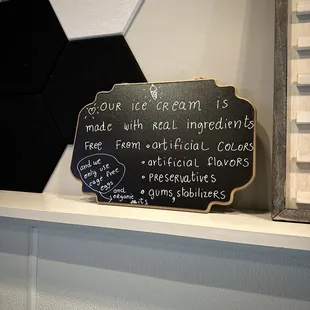 OUR ice cream is
made with real ingredients
Free From • artificial COLORS
• artificial flavors
• preservatives
• gums, stabilizers
and we
only use
cage free
eggs
and
organic